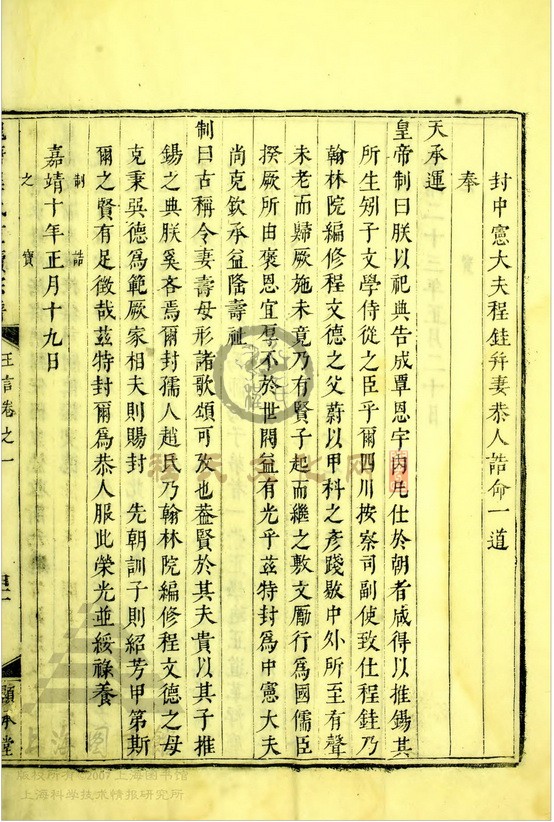 封中憲大夫程銈弁妻恭人誥命一道
奉
天承運
皇帝制曰朕以祀典告成覃恩宇内凡仕於朝者咸得以推錫其
所生矧子文學侍從之臣乎爾四川按察司副使致仕程銈乃
翰林院編修程文德之父蔚以甲科之彦踐敭中外所至有聲
未老而歸厥施未竟乃有賢子起而繼之敷文勵行爲國儒臣
揆厥所由褒恩宜孚不於世閥益有光乎茲特封爲中憲大夫
尚克欽承益隆壽祉
制曰古稱令妻壽母形諸歌頌可攷也葢賢於其夫貴以其子推
錫之典朕奚吝焉爾封孺人趙氏乃翰林院編修程文德之母
克秉吳德爲範厥家相夫則賜封 先朝訓子則紹芳甲第斯
爾之賢有足徵哉茲特封爾爲恭人服此榮光並綏祿養
嘉靖十年正月十九日
制誥
之寶
王言卷之一
顯承堂
程氏文化网
版权所有©2007上海图书馆
上海科学技术情报研究所